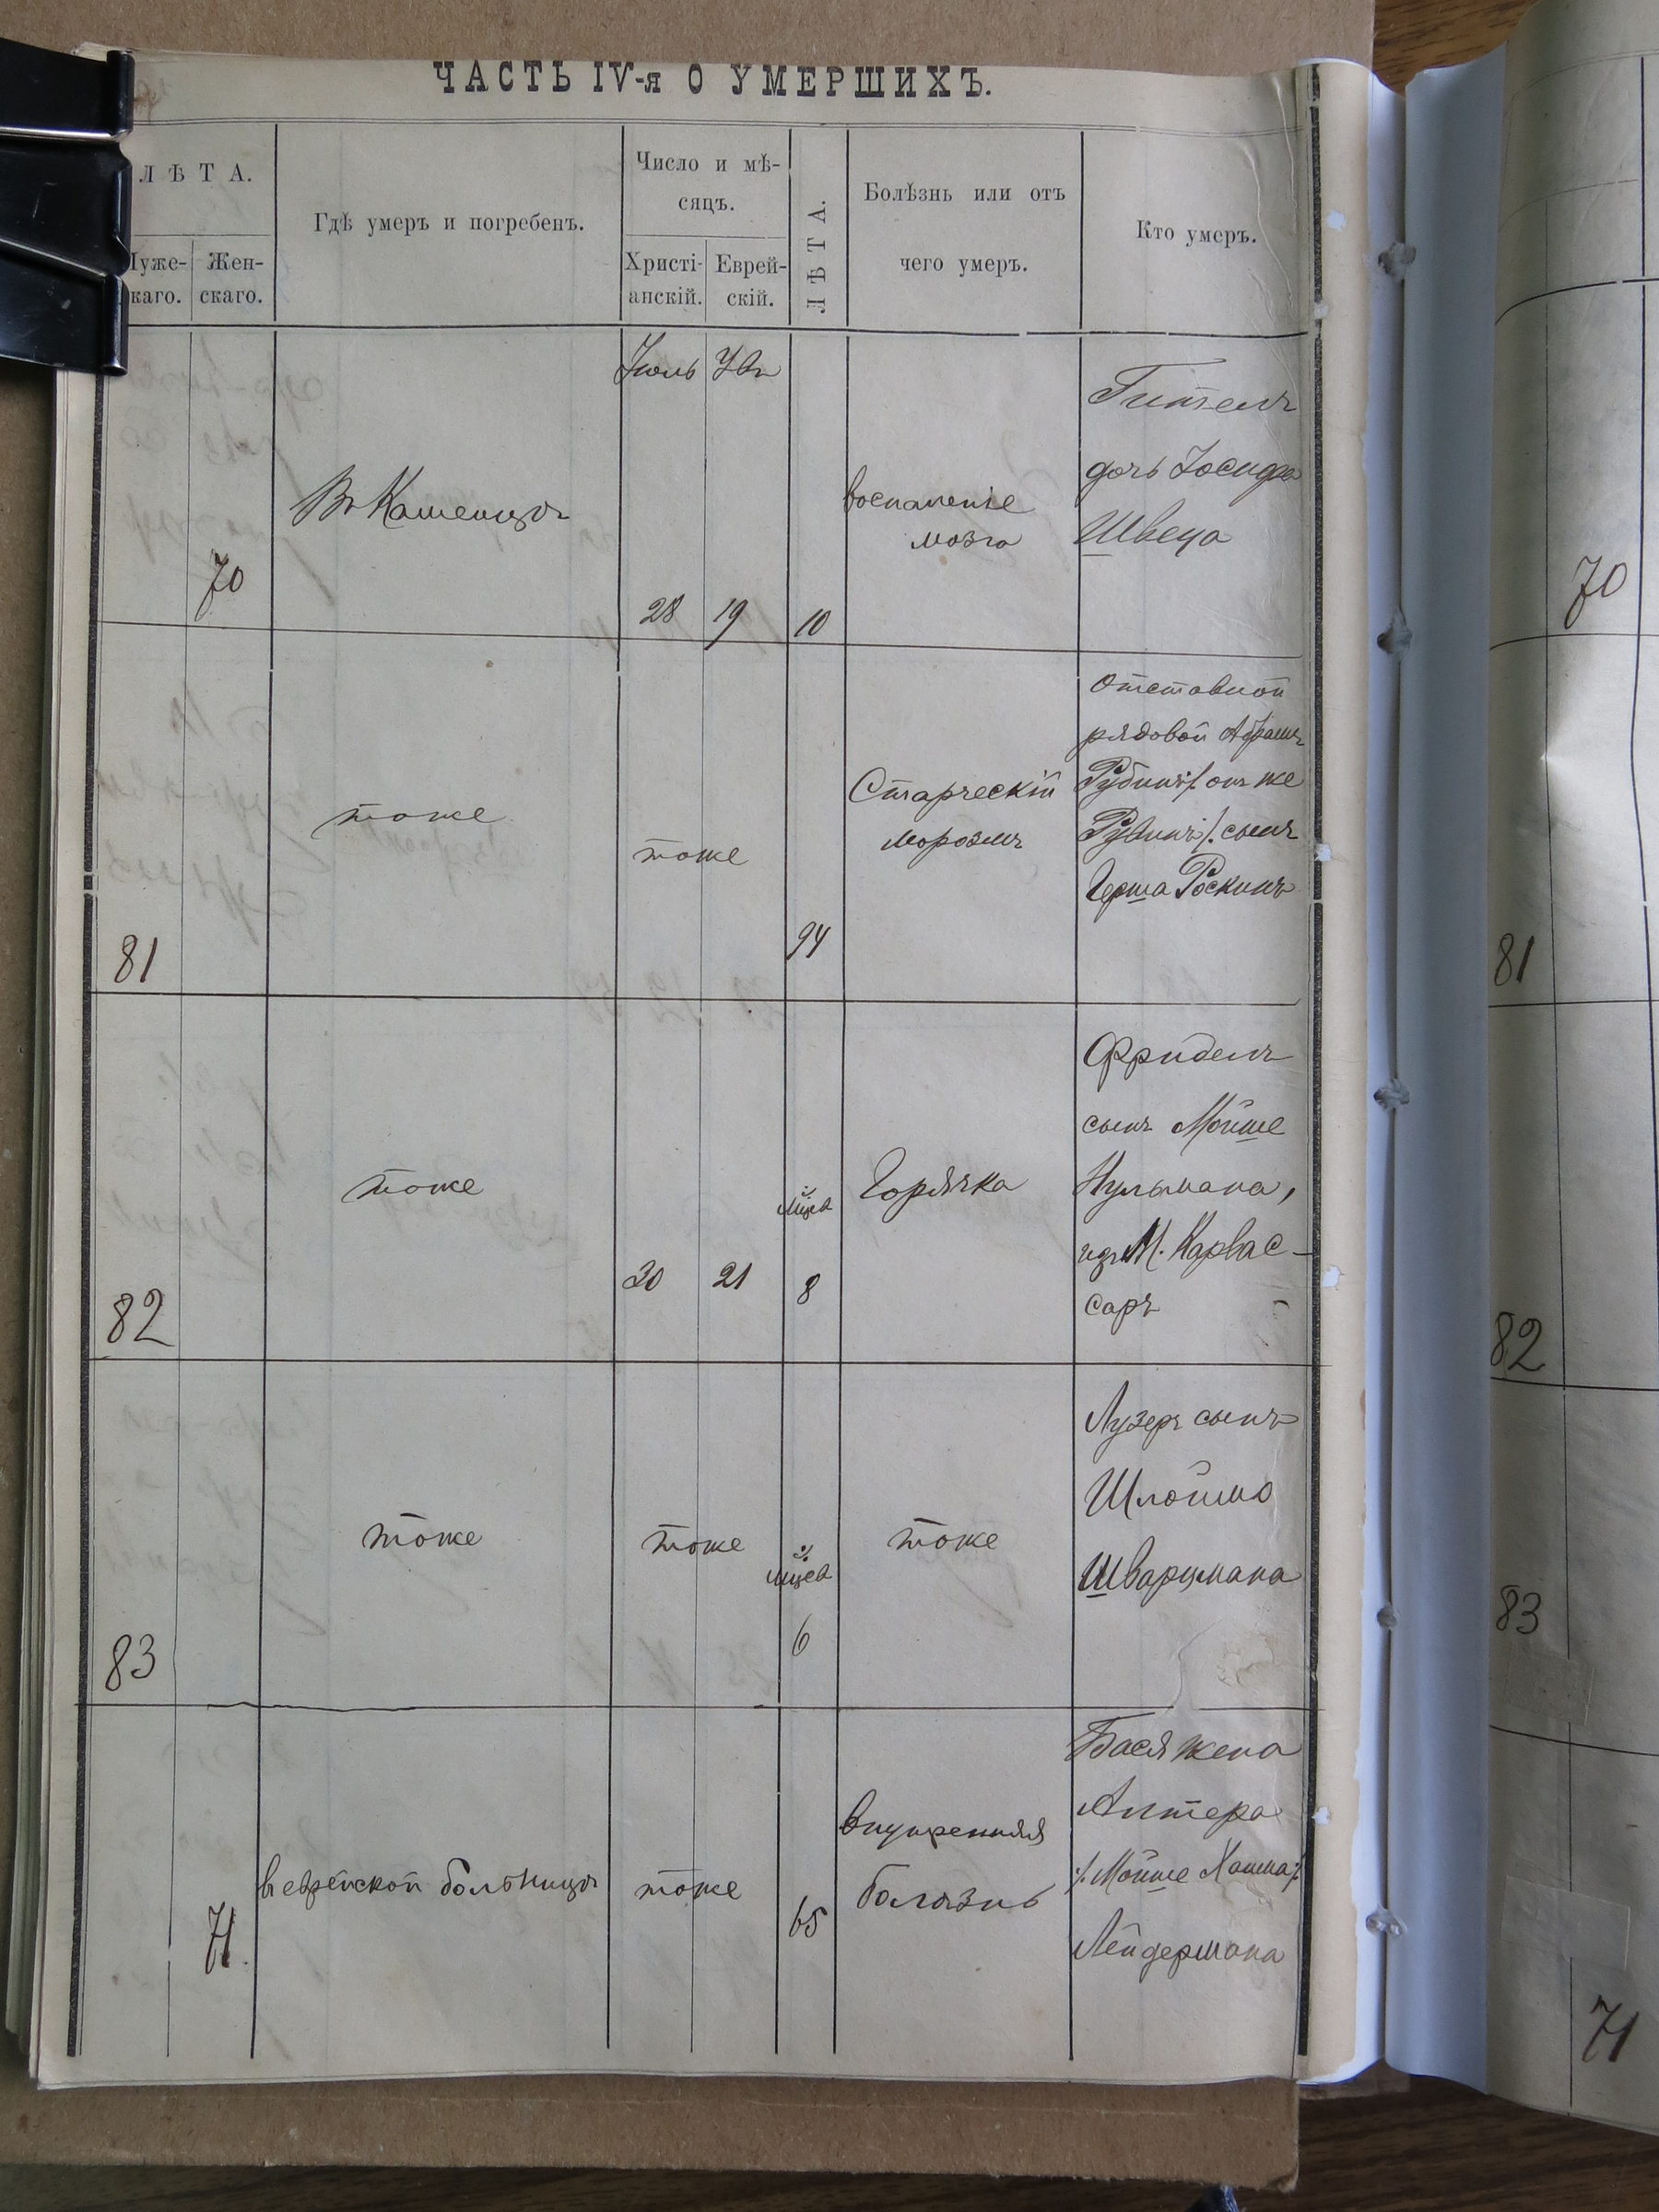 ЧАСТЬ IV-я О УМЕРШИХЪ.
ЛѢТА.
Муже-
скаго.
Жен-
скаго.
Гдѣ умеръ и погребенъ.
Число и мѣ-
сяцъ.
Христі-
анскій.
Еврей-
скій.
ЛѢТА.
Болѣзнь или отъ
чего умеръ.
Кто умеръ.
70
Въ Каменцѣ
Июль
28
19
10
воспаленіе
мозга
Гителъ
дочь Іосифа
Швеца
81
тоже
тоже
94
Старческій
морозмъ
Отставной
рядовой Абрамъ
Рубинъ /: онъ же
Рувинъ :/ сынъ
Герша Роскинъ
82
тоже
30
21
мцев
8
Горячка
Фридель
сынъ Мойше
Нульмана,
изъ М. Карвас-
саръ
83
тоже
тоже
мцев
6
тоже
Лузеръ сынъ
Шлоймо
Шварцмана
71
въ еврейской больницѣ
тоже
65
внутренняя
болѣзнь
Бася жена
Алтера
/: Мойше Хаима :/
Лейдермана
70
81
82
83
71